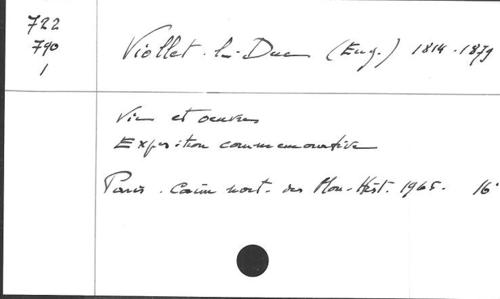 722
790
1
Viollet-le-Duc (Eug.) 1814-1879
Vie et oeuvres
Exposition commemorative
Paris. Caisse nat. des Mon. Hist. 1965. 16°